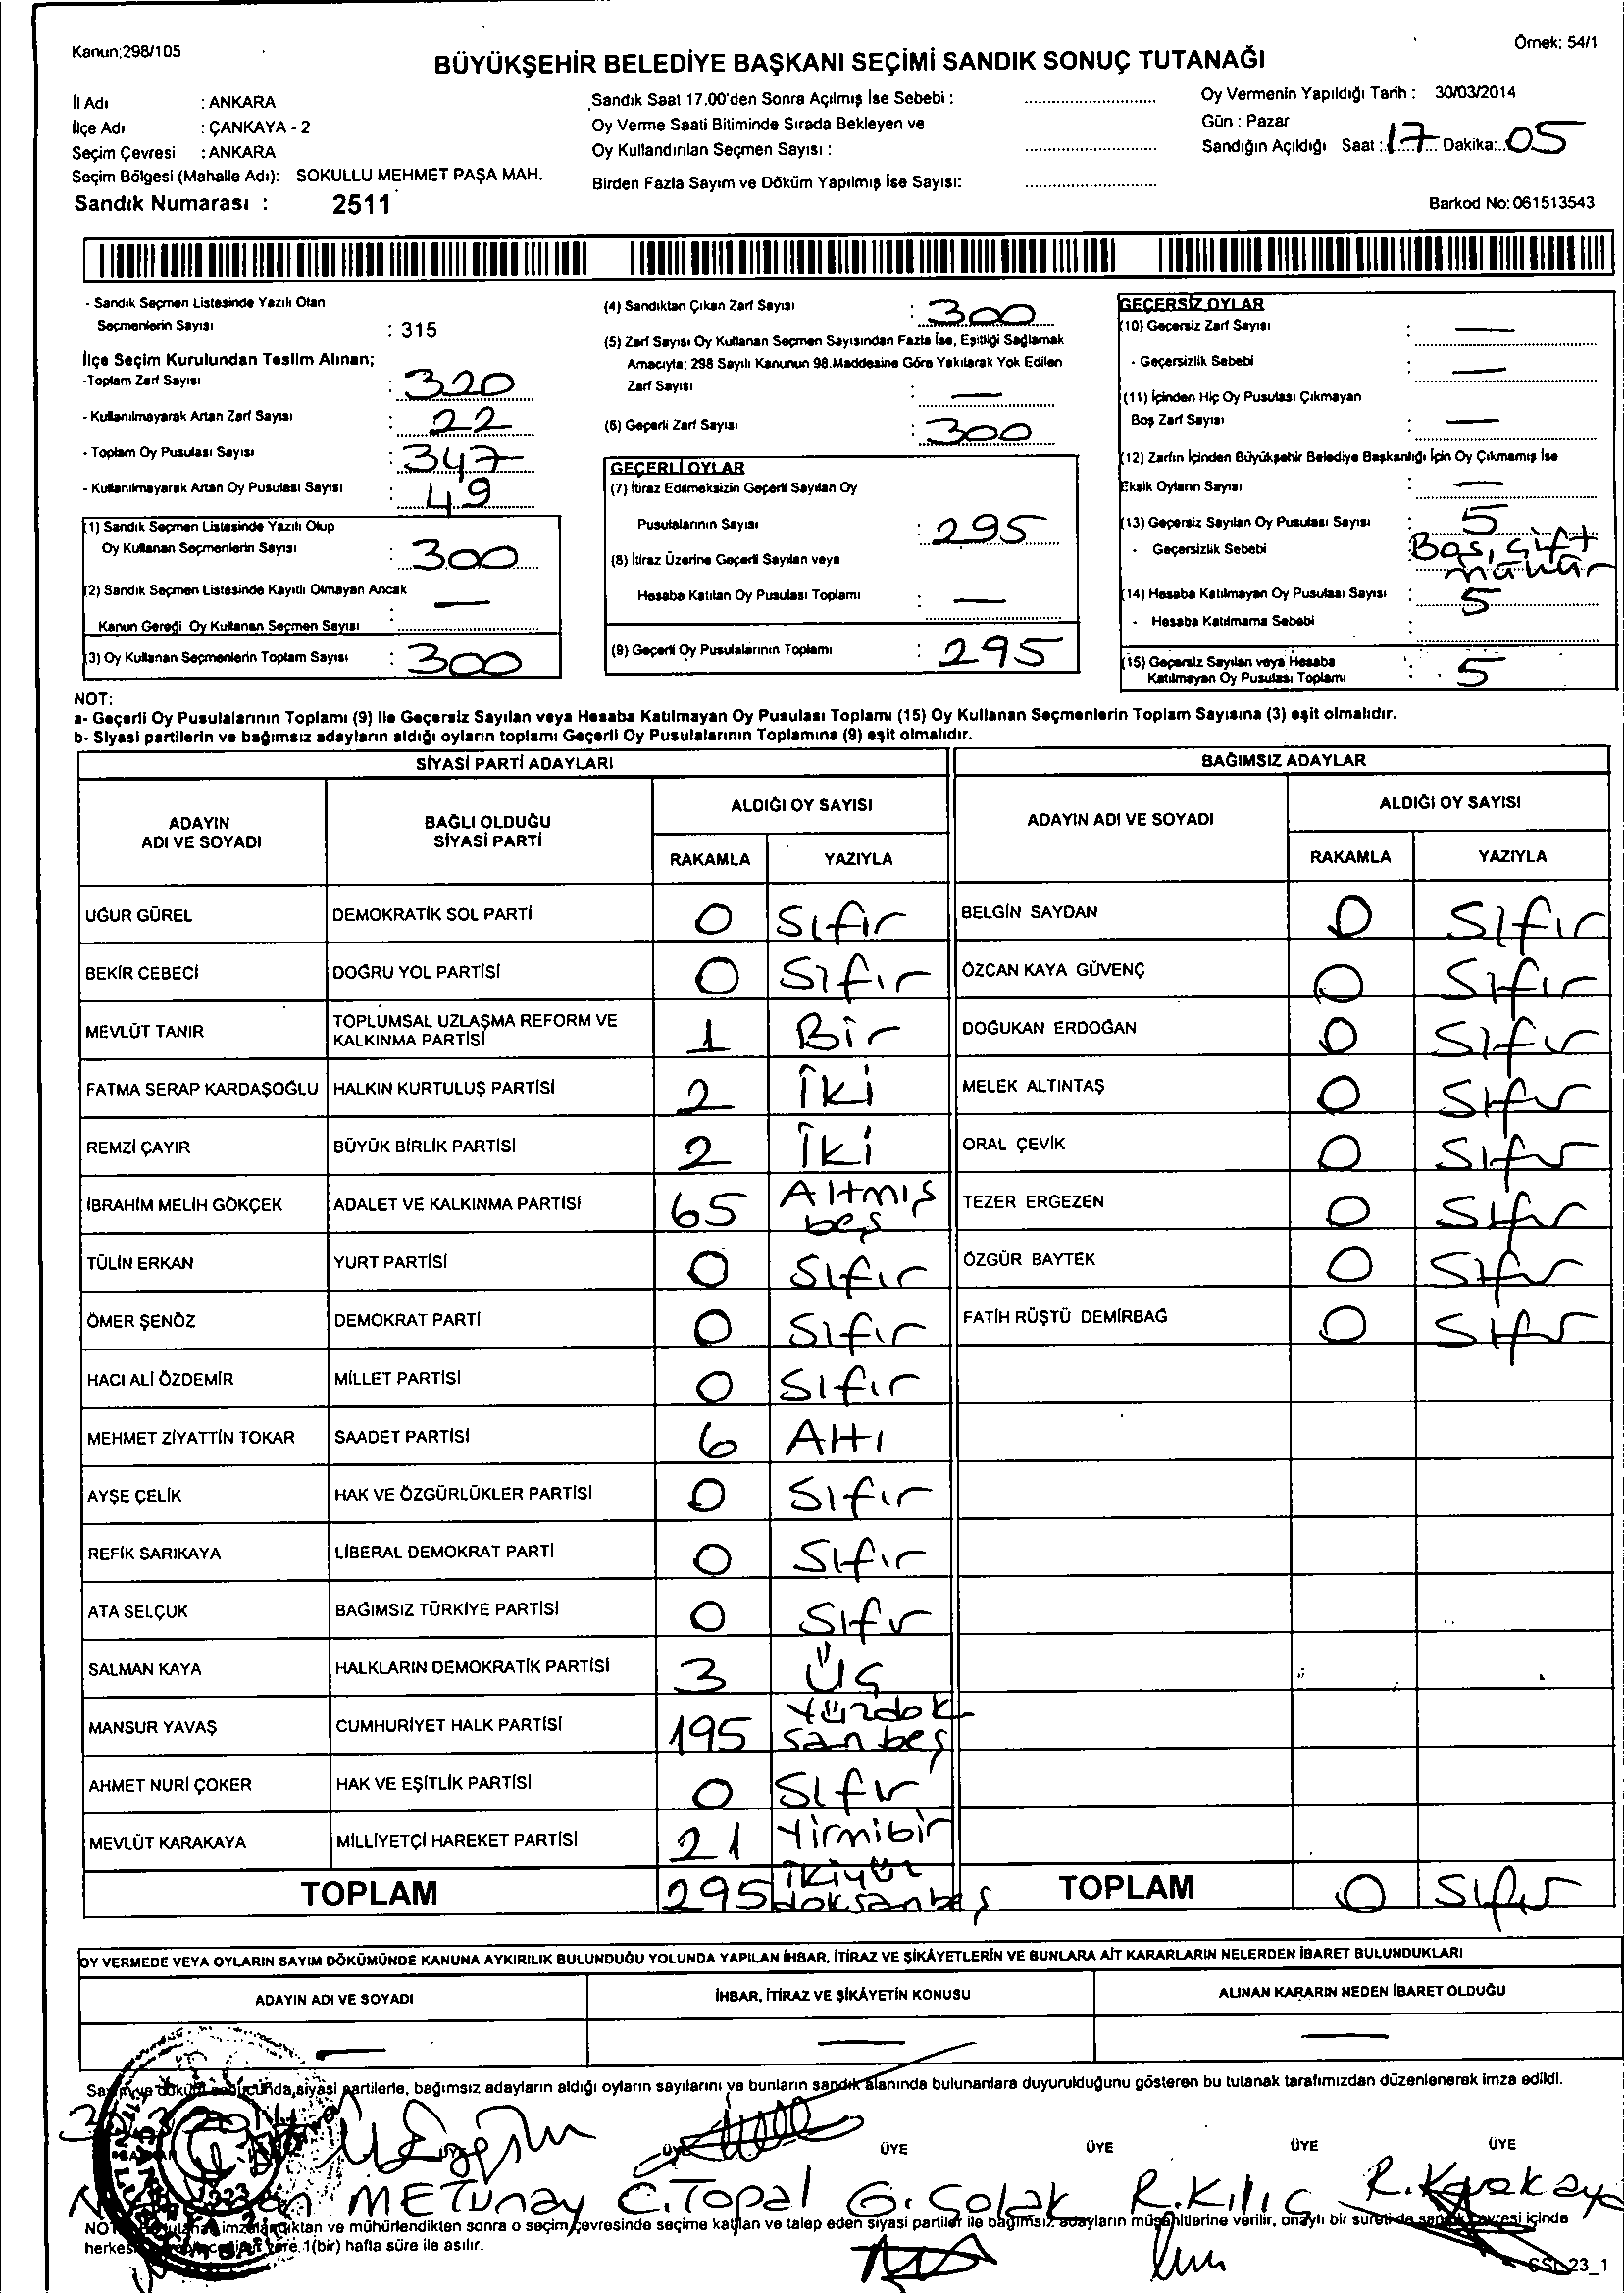 Kanun:298/105
Örnek: 54/1
BÜYÜKŞEHİR BELEDİYE BAŞKANI SEÇİMİ SANDIK SONUÇ TUTANAĞI
İl Adı : ANKARA
İlçe Adı : ÇANKAYA - 2
Seçim Çevresi : ANKARA
Seçim Bölgesi (Mahalle Adı): SOKULLU MEHMET PAŞA MAH.
Sandık Numarası : 2511
Sandık Saat 17.00'den Sonra Açılmış İse Sebebi :
Oy Verme Saati Bitiminde Sırada Bekleyen ve
Oy Kullandırılan Seçmen Sayısı :
Birden Fazla Sayım ve Döküm Yapılmış İse Sayısı:
Oy Vermenin Yapıldığı Tarih : 30/03/2014
Gün : Pazar
Sandığın Açıldığı Saat : 17 Dakika: 05
Barkod No: 061513543
- Sandık Seçmen Listesinde Yazılı Olan
Seçmenlerin Sayısı : 315
İlçe Seçim Kurulundan Teslim Alınan;
-Toplam Zarf Sayısı : 320
- Kullanılmayarak Artan Zarf Sayısı : 22
- Toplam Oy Pusulası Sayısı : 347
- Kullanılmayarak Artan Oy Pusulası Sayısı : 49
(1) Sandık Seçmen Listesinde Yazılı Olup
Oy Kullanan Seçmenlerin Sayısı : 300
(2) Sandık Seçmen Listesinde Kayıtlı Olmayan Ancak
Kanun Gereği Oy Kullanan Seçmen Sayısı : —
(3) Oy Kullanan Seçmenlerin Toplam Sayısı : 300
(4) Sandıktan Çıkan Zarf Sayısı : 300
(5) Zarf Sayısı Oy Kullanan Seçmen Sayısından Fazla İse, Eşitliği Sağlamak
Amacıyla; 298 Sayılı Kanunun 98.Maddesine Göre Yakılarak Yok Edilen
Zarf Sayısı : —
(6) Geçerli Zarf Sayısı : 300
GEÇERLİ OYLAR
(7) İtiraz Edilmeksizin Geçerli Sayılan Oy
Pusulalarının Sayısı : 295
(8) İtiraz Üzerine Geçerli Sayılan veya
Hesaba Katılan Oy Pusulası Toplamı : —
(9) Geçerli Oy Pusulalarının Toplamı : 295
GEÇERSİZ OYLAR
(10) Geçersiz Zarf Sayısı : —
- Geçersizlik Sebebi : —
(11) İçinden Hiç Oy Pusulası Çıkmayan
Boş Zarf Sayısı : —
(12) Zarfın İçinden Büyükşehir Belediye Başkanlığı İçin Oy Çıkmamış İse
Eksik Oyların Sayısı : —
(13) Geçersiz Sayılan Oy Pusulası Sayısı : 5
- Geçersizlik Sebebi : Boş, çift
mühür
(14) Hesaba Katılmayan Oy Pusulası Sayısı : 5
- Hesaba Katılmama Sebebi :
(15) Geçersiz Sayılan veya Hesaba
Katılmayan Oy Pusulası Toplamı : 5
NOT:
a- Geçerli Oy Pusulalarının Toplamı (9) ile Geçersiz Sayılan veya Hesaba Katılmayan Oy Pusulası Toplamı (15) Oy Kullanan Seçmenlerin Toplam Sayısına (3) eşit olmalıdır.
b- Siyasi partilerin ve bağımsız adayların aldığı oyların toplamı Geçerli Oy Pusulalarının Toplamına (9) eşit olmalıdır.
SİYASİ PARTİ ADAYLARI
ADAYIN ADI VE SOYADI
BAĞLI OLDUĞU SİYASİ PARTİ
ALDIĞI OY SAYISI
RAKAMLA YAZIYLA
UĞUR GÜREL DEMOKRATİK SOL PARTİ 0 Sıfır
BEKİR CEBECİ DOĞRU YOL PARTİSİ 0 Sıfır
MEVLÜT TANIR TOPLUMSAL UZLAŞMA REFORM VE KALKINMA PARTİSİ 1 Bir
FATMA SERAP KARDAŞOĞLU HALKIN KURTULUŞ PARTİSİ 2 İki
REMZİ ÇAYIR BÜYÜK BİRLİK PARTİSİ 2 İki
İBRAHİM MELİH GÖKÇEK ADALET VE KALKINMA PARTİSİ 65 Altmış beş
TÜLİN ERKAN YURT PARTİSİ 0 Sıfır
ÖMER ŞENÖZ DEMOKRAT PARTİ 0 Sıfır
HACI ALİ ÖZDEMİR MİLLET PARTİSİ 0 Sıfır
MEHMET ZİYATTİN TOKAR SAADET PARTİSİ 6 Altı
AYŞE ÇELİK HAK VE ÖZGÜRLÜKLER PARTİSİ 0 Sıfır
REFİK SARIKAYA LİBERAL DEMOKRAT PARTİ 0 Sıfır
ATA SELÇUK BAĞIMSIZ TÜRKİYE PARTİSİ 0 Sıfır
SALMAN KAYA HALKLARIN DEMOKRATİK PARTİSİ 3 Üç
MANSUR YAVAŞ CUMHURİYET HALK PARTİSİ 195 Yüzdoksanbeş
AHMET NURİ ÇOKER HAK VE EŞİTLİK PARTİSİ 0 Sıfır
MEVLÜT KARAKAYA MİLLİYETÇİ HAREKET PARTİSİ 21 Yirmibir
TOPLAM 295 İkiyüz doksanbeş
BAĞIMSIZ ADAYLAR
ADAYIN ADI VE SOYADI
ALDIĞI OY SAYISI
RAKAMLA YAZIYLA
BELGİN SAYDAN 0 Sıfır
ÖZCAN KAYA GÜVENÇ 0 Sıfır
DOĞUKAN ERDOĞAN 0 Sıfır
MELEK ALTINTAŞ 0 Sıfır
ORAL ÇEVİK 0 Sıfır
TEZER ERGEZEN 0 Sıfır
ÖZGÜR BAYTEK 0 Sıfır
FATİH RÜŞTÜ DEMİRBAĞ 0 Sıfır
TOPLAM 0 Sıfır
OY VERMEDE VEYA OYLARIN SAYIM DÖKÜMÜNDE KANUNA AYKIRILIK BULUNDUĞU YOLUNDA YAPILAN İHBAR, İTİRAZ VE ŞİKÂYETLERİN VE BUNLARA AİT KARARLARIN NELERDEN İBARET BULUNDUKLARI
ADAYIN ADI VE SOYADI İHBAR, İTİRAZ VE ŞİKÂYETİN KONUSU ALINAN KARARIN NEDEN İBARET OLDUĞU
— — —
Sayım ve döküm sonucunda,siyasi partilerle, bağımsız adayların aldığı oyların sayılarını ve bunların sandık alanında bulunanlara duyurulduğunu gösteren bu tutanak tarafımızdan düzenlenerek imza edildi.
ÜYE ÜYE ÜYE ÜYE ÜYE
METunay C.Topal G. Çolak R.Kılıç R.Karakaya
imzalandıktan ve mühürlendikten sonra o seçim çevresinde seçime katılan ve talep eden siyasi partiler ile bağımsız adayların müşahitlerine verilir, onaylı bir sureti de sandık çevresi içinde
yere 1(bir) hafta süre ile asılır.
23_1